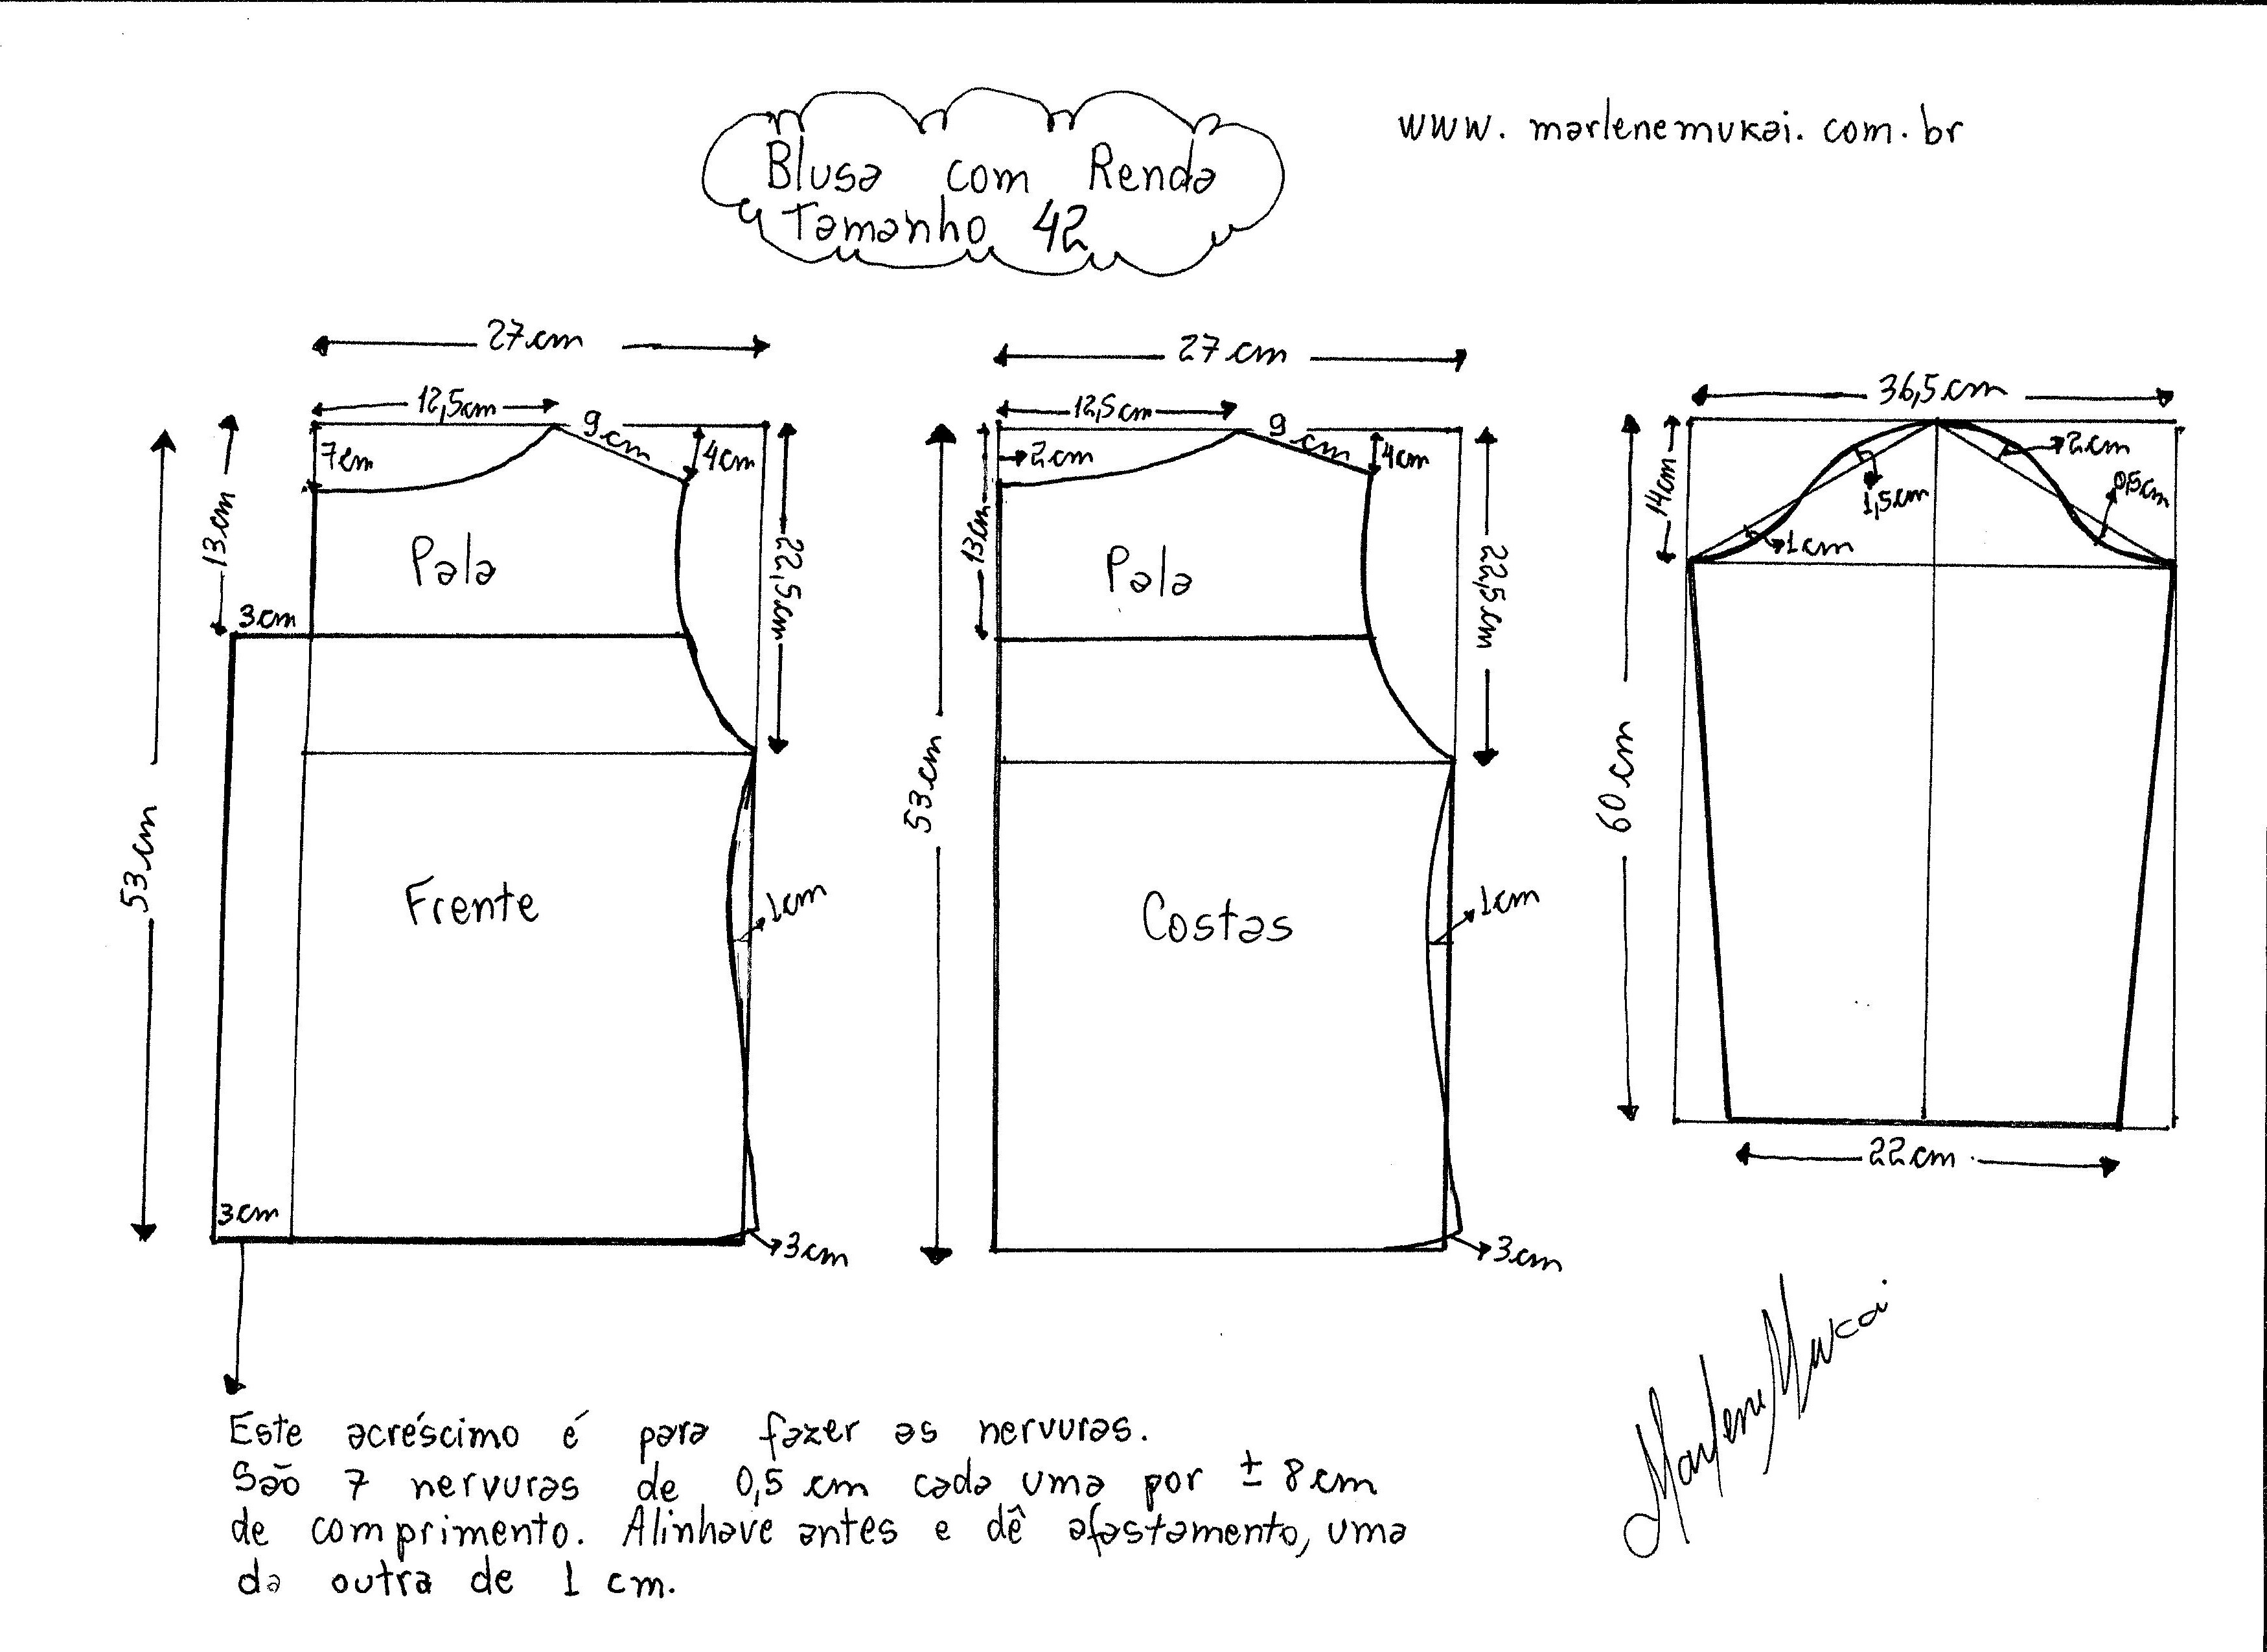 www.marlenemukai.com.br
Blusa com Renda
Tamanho 42
27cm
12,5cm
9cm
7cm
4cm
13cm
22,5cm
Pala
3cm
53cm
Frente
1cm
3cm
3cm
27cm
12,5cm
9cm
2cm
4cm
13cm
22,5cm
Pala
53cm
Costas
1cm
3cm
36,5cm
14cm
2cm
1,5cm
0,5cm
1cm
60cm
22cm
Este acréscimo é para fazer as nervuras.
São 7 nervuras de 0,5 cm cada uma por ± 8cm
de comprimento. Alinhave antes e dê afastamento, uma
da outra de 1 cm.
Marlene Mukai